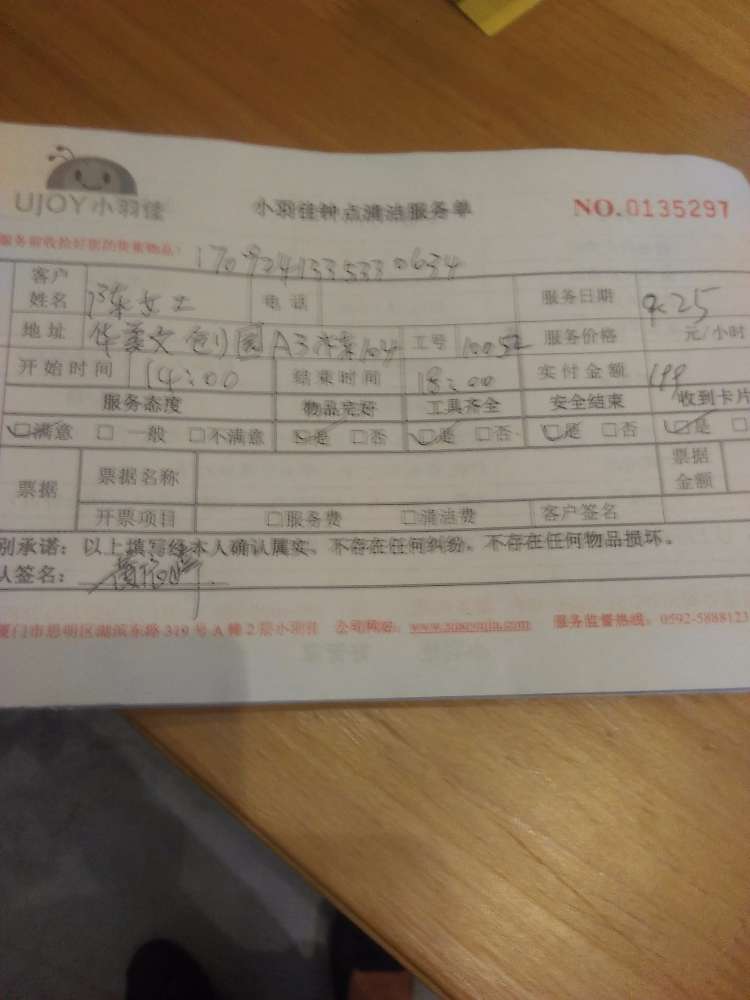 UJOY小羽佳 小羽佳钟点清洁服务单 NO.0135297
服务前收拾好您的贵重物品!
客户姓名 陈女士 电话 服务日期 9.25
地址 华美文创园A3 104 工号 10052 服务价格 元/小时
开始时间 14:00 结束时间 18:00 实付金额 199
服务态度 物品完好 工具齐全 安全结束 收到卡片
☑满意 □一般 □不满意 ☑是 □否 ☑是 □否 ☑是 □否 ☑是 □
票据 票据名称 票据金额
开票项目 □服务费 □清洁费 客户签名
别承诺:以上填写经本人确认属实、不存在任何纠纷、不存在任何物品损坏。
认签名:
厦门市思明区湖滨东路319号A幢2层小羽佳 公司网站: 服务监督热线:0592-5888123